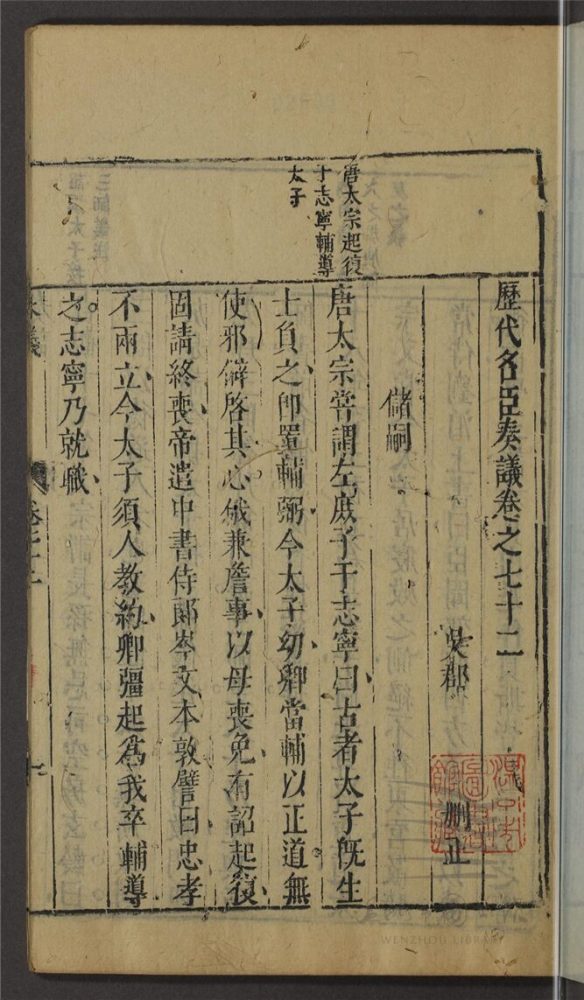 歷代名臣奏議卷之七十二
吳郡
刪正
儲嗣
唐太宗起復
于志寧輔導
太子
唐太宗嘗謂左庶子于志寧曰古者太子旣生
士負之卽置輔弼今太子幼卿當輔以正道無
使邪僻啓其心俄兼詹事以母喪免有詔起復
固請終喪帝遣中書侍郎岑文本敦譬曰忠孝
不兩立今太子須人教約卿彊起爲我卒輔導
之志寧乃就職
WENZHOU LIBRARY